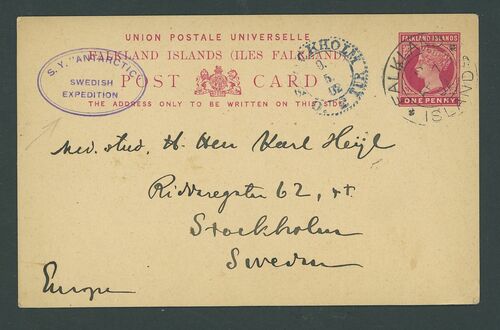 UNION POSTALE UNIVERSELLE
FALKLAND ISLANDS (ILES FALKLAND
POST CARD
THE ADDRESS ONLY TO BE WRITTEN ON THIS SIDE
S. Y. "ANTARCTIC"
SWEDISH
EXPEDITION
FALKLAND ISLANDS
ONE PENNY
FALKLAND ISLANDS
Med. stud. H. Herr Karl Heijl
62,
Stockholm
Sweden
Europe